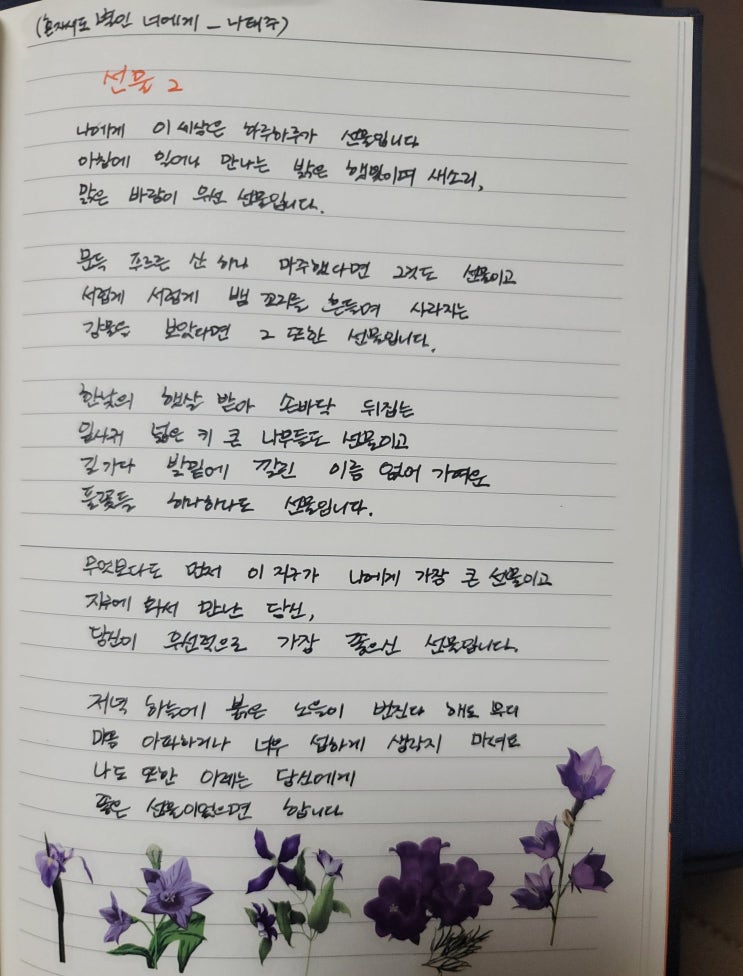 (혼자서도 별인 너에게 _ 나태주)
선물 2
나에게 이 세상은 하루하루가 선물입니다
아침에 일어나 만나는 밝은 햇빛이며 새소리,
맑은 바람이 우선 선물입니다.
문득 푸르른 산 하나 마주했다면 그것도 선물이고
서럽게 서럽게 뱀 꼬리를 흔들며 사라지는
강물을 보았다면 그 또한 선물입니다.
한낮의 햇살 받아 손바닥 뒤집는
잎사귀 넓은 키 큰 나무들도 선물이고
길 가다 발밑에 깔린 이름 없어 가여운
풀꽃들 하나하나도 선물입니다.
무엇보다도 먼저 이 지구가 나에게 가장 큰 선물이고
지구에 와서 만난 당신,
당신이 우선적으로 가장 좋으신 선물입니다.
저녁 하늘에 붉은 노을이 번진다 해도 부디
마음 아파하거나 너무 섭하게 생각지 마셔요
나도 또한 이제는 당신에게
좋은 선물이었으면 합니다